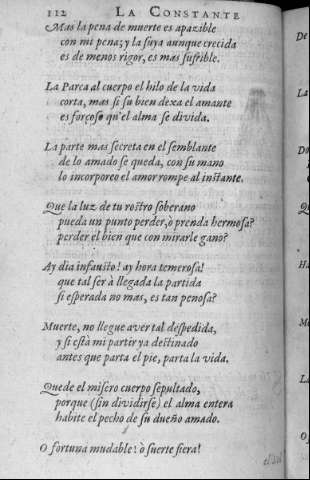 112 LA CONSTANTE
Mas la pena de muerte es apazible
con mi pena; y la suya aunque crecida
es de menos rigor, es mas sufrible.
La Parca al cuerpo el hilo de la vida
corta, mas si su bien dexa el amante
es forçoso qu'el alma se divida.
La parte mas secreta en el semblante
de lo amado se queda, con su mano
lo incorporeo el amor rompe al instante.
Que la luz de tu rostro soberano
pueda un punto perder, ò prenda hermosa?
perder el bien que con mirarle gano?
Ay dia infausto! ay hora temerosa!
que tal ser à llegada la partida
si esperada no mas, es tan penosa?
Muerte, no llegue aver tal despedida,
y si està mi partir ya destinado
antes que parta el pie, parta la vida.
Quede el misero cuerpo sepultado,
porque (sin dividirse) el alma entera
habite el pecho de su dueño amado.
O fortuna mudable! ò suerte fiera!
De
La
Qu
Ha
M
La